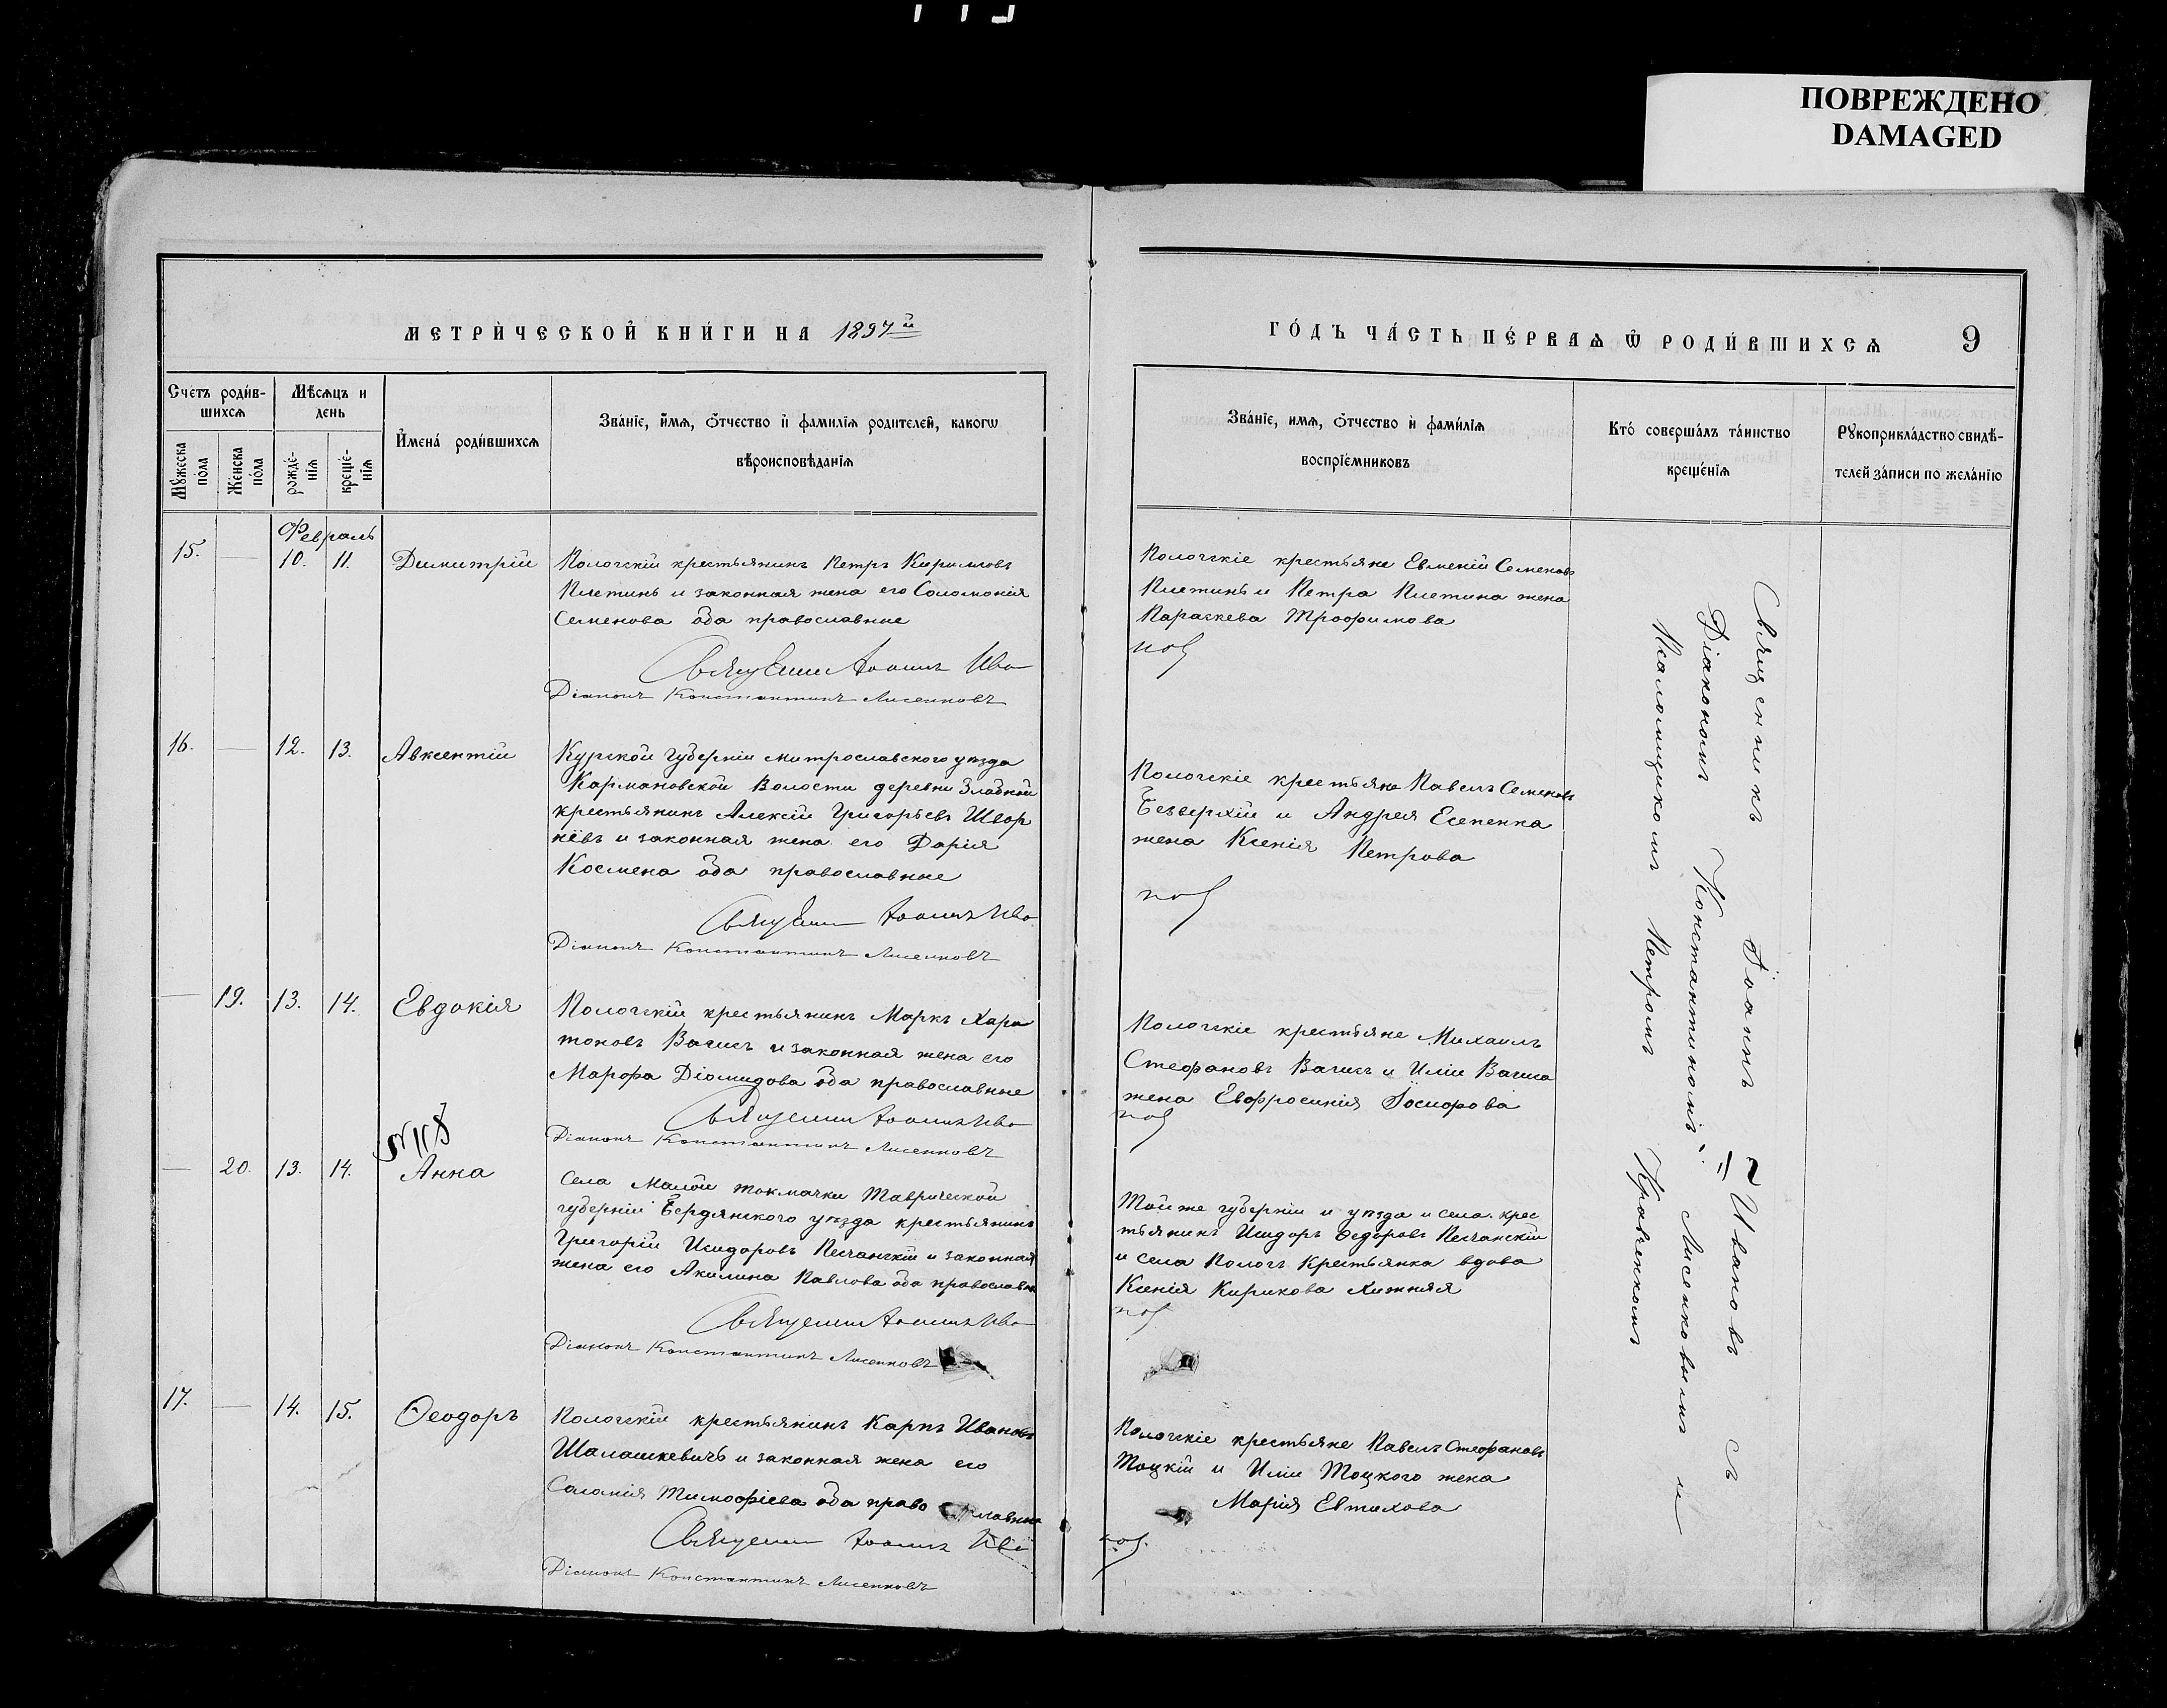 ПОВРЕЖДЕНО
DAMAGED
МЕТРИ́ЧЕСКОЙ КНИ́ГИ НА 1897й
ГО́ДЪ ЧА́СТЬ ПЕ́РВАѦ Ѽ РОДИ́ВШИХСѦ 9
Счетъ роди́в-
шихсѧ
Мѣсѧцъ и
день
Мꙋжеска
по́ла
Же́нска
по́ла
рожде́-
нїѧ
креще́-
нїѧ
И́мена́ роди́вшихсѧ
Зва́нїе, и́мѧ, ѻ́тчество и҆ фами́лїѧ родителей, какогѡ
вѣроисповѣданїѧ
Зва́нїе, имѧ, ѻ́тчество и҆ фами́лїѧ
воспрїе́мниковъ
Кто́ соверша́лъ та́инство
креще́нїѧ
Рꙋкоприкла́дство свидѣ-
телей за́писи по жела́нїю
Февраль
15. — 10. 11. Димитрій
Пологскій крестьянинъ Петръ Кирилловъ
Плетинь и законная жена его Соломонія
Семенова оба православные
Священни Іоаннъ Ива
Діаконъ Константинъ Лисенковъ
Пологскіе крестьяне Евменій Семеновъ
Плетинь и Петра Плетина жена
Параскева Трофимова
16. — 12. 13. Авксентій
Курской губерніи Митрославского уѣзда
Кармановской Волости деревни
крестьянинъ Алексій Григорьевъ Швор
невъ и законная жена его Дарія
Космена оба православные
Священни Іоаннъ Ива
Діаконъ Константинъ Лисенковъ
Пологскіе крестьяне Павелъ Семеновъ
Безверхій и Андрея Есепенка
жена Ксенія Петрова
— 19. 13. 14. Евдокія
Пологскій крестьянинъ Маркъ Хари
тоновъ Вагисъ и законная жена его
Марфа Діомидова оба православные
Священни Іоаннъ Ива
Діаконъ Константинъ Лисенковъ
Пологскіе крестьяне Михаилъ
Стефановъ Вагисъ и Иліи Вагиса
жена Евфросинія Іосифова
№ 118
— 20. 13. 14. Анна
Села Малой Токмачки Таврической
губерніи Бердянского уѣзда крестьянинъ
Григорій Исидоровъ Песчанскій и законная
жена его Акилина Павлова оба православн
Священни Іоаннъ Ива
Діаконъ Константинъ Лисенковъ
Той же губерніи и уѣзда и села крес
тьянинъ Исидоръ Федоровъ Песчанскій
и села Пологъ Крестьянка вдова
Ксенія Кирикова Хижняя
17. — 14. 15. Ѳеодоръ
Пологскій крестьянинъ Карпъ Ивановъ
Шалашкевичъ и законная жена его
Саломія Тимофіева оба право славные
Священни Іоаннъ Ива
Діаконъ Константинъ Лисенковъ
Пологскіе крестьяне Павелъ Стефановъ
Тоцкій и Иліи Тоцкого жена
Марія Евтихова
Священникъ Іоаннъ Ивановъ съ
Діакономъ Константиномъ Лисенковымъ и
Псаломщикомъ Петромъ Кравченкомъ